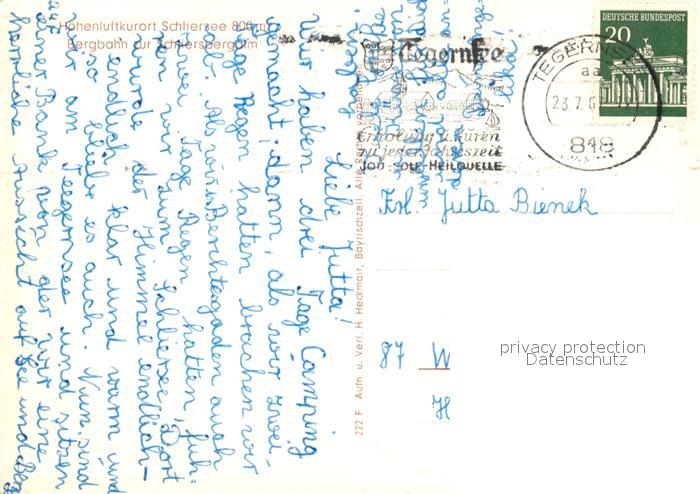 Höhenluftkurort Schliersee 800 m
Bergbahn zur Schliersbergalm
Liebe Jutta!
Wir haben drei Tage Camping
gemacht, dann, als wir zwei
Tage Regen hatten brachen wir
ab. Als wir in Berchtesgaden auch
zwei Tage Regen hatten, fuh-
ren wir zum Schliersee. Dort
wurde der Himmel endlich
endlich klar und warm und
so blieb es auch. Nun sind
wir am Tegernsee und sitzen
auf einer Bank von der wir eine
herrliche Aussicht auf See und Berg
222 F Aufn. u. Verl. H. Heckmair, Bayrischzell. Alle Rechte vorbehalten
Tegernsee
Erholung u. Kuren
zu jeder Jahreszeit
JOD - OLE - HEILQUELLE
TEGERNSEE
aa
23.7.6
818
DEUTSCHE BUNDESPOST
20
Frl. Jutta Bienek
87 W
H
privacy protection
Datenschutz